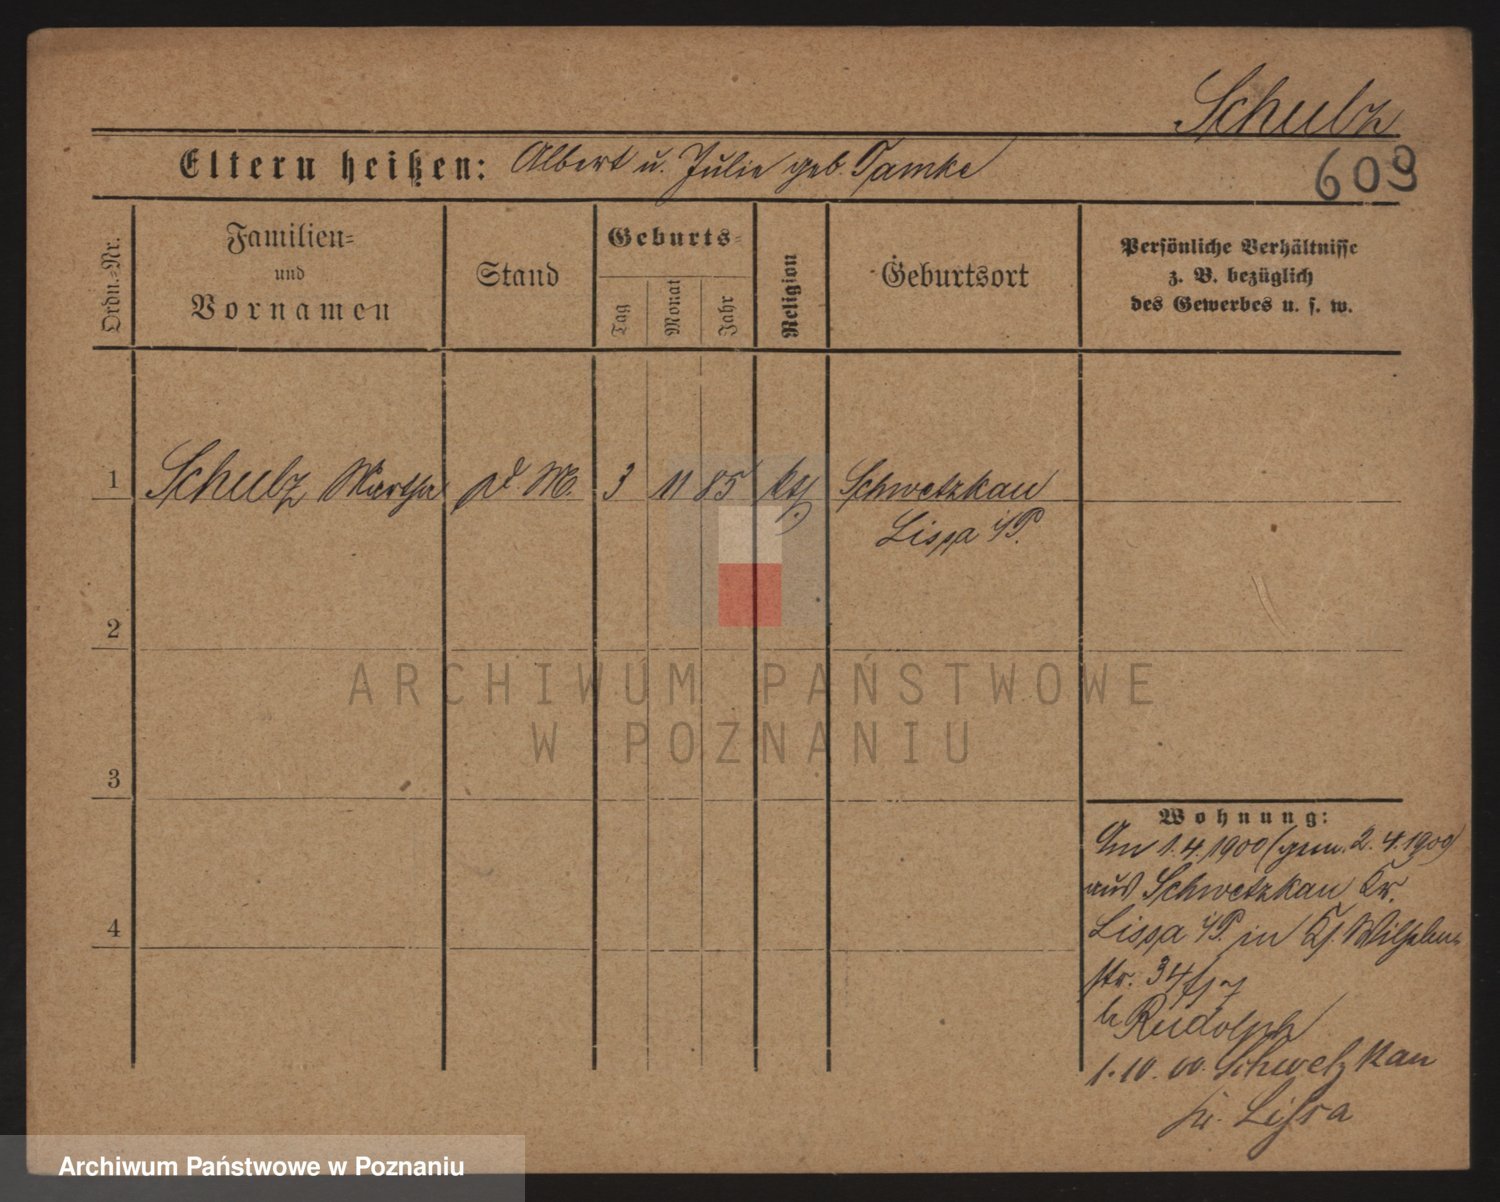 Schulz
609
Eltern heißen: Albert u. Julie geb. Tamke
Ordn.-Nr.
Familien-
und
Vornamen
Stand
Geburts-
Tag
Monat
Jahr
Religion
Geburtsort
Persönliche Verhältnisse
z. B. bezüglich
des Gewerbes u. s. w.
1 Schulz Martha d M. 3 11 85 kth Schwetzkau
Lissa i/P.
2
3
4
Wohnung:
An 1.4.1900 (gem. 2.4.1900)
aus Schwetzkau Kr.
Lissa i/P. in Wilhelm-
str. 34
b Rudolph
1.10.00. Schwetzkau
Lissa
ARCHIWUM PAŃSTWOWE
W POZNANIU
Archiwum Państwowe w Poznaniu